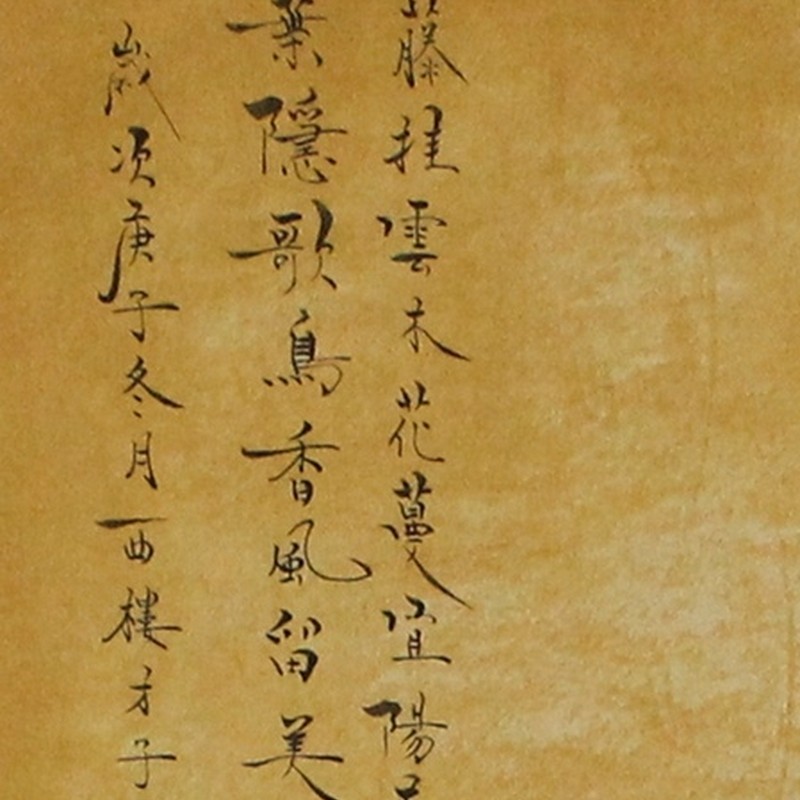 藤挂雲木花蔓宜陽
葉隱歌鳥香風留美
歲次庚子冬月西樓才子